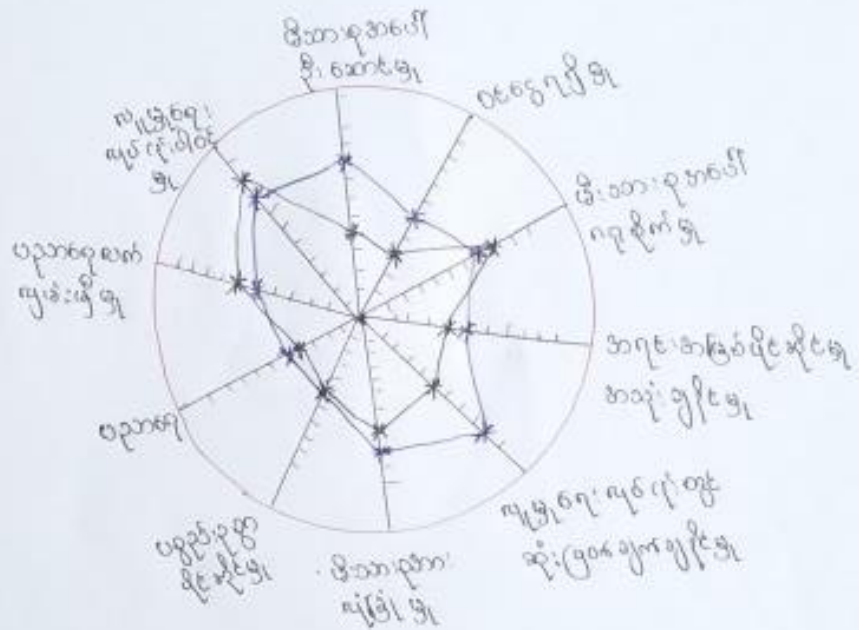 မိသားစုအပေါ်
ဦးဆောင်မှု
ဝင်ငွေရရှိမှု
မိသားစုအပေါ်
ဂရုစိုက်မှု
အရင်းအမြစ်ပိုင်ဆိုင်မှု
အသုံးချနိုင်မှု
လူမှုရေးလုပ်ငန်းတွင်
ဆုံးဖြတ်ချက်ချနိုင်မှု
မိသားစုအား
လုံခြုံမှု
ပစ္စည်းဥစ္စာ
ပိုင်ဆိုင်မှု
ပညာရေ
ပညာရေလက်
လှမ်းမှီမှု
လူမှုရေး
လုပ်ငန်းပါဝင်
မှု